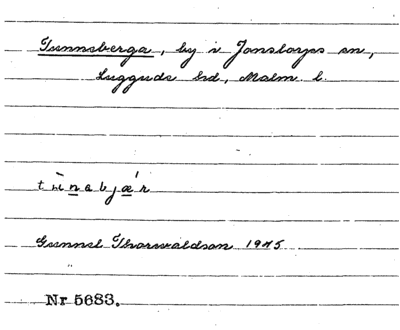 Tunneberga, by i Jonstorps sn,
Luggude hd, Malm. l.
Gunnel Thorwaldson 1945
Nr 5683.